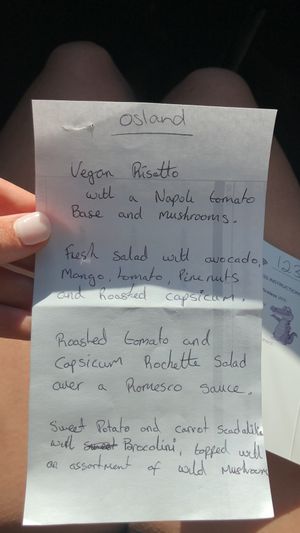 osland
Vegan Risotto
with a Napoli tomato
Base and mushrooms.
Fresh salad with avocado,
Mango, tomato, Pinenuts
and Roasted capsicum.
Roasted tomato and
Capsicum Rochette Salad
over a Romesco sauce.
Sweet Potato and carrot
with Brocolini, topped with
an assortment of wild Mushroom